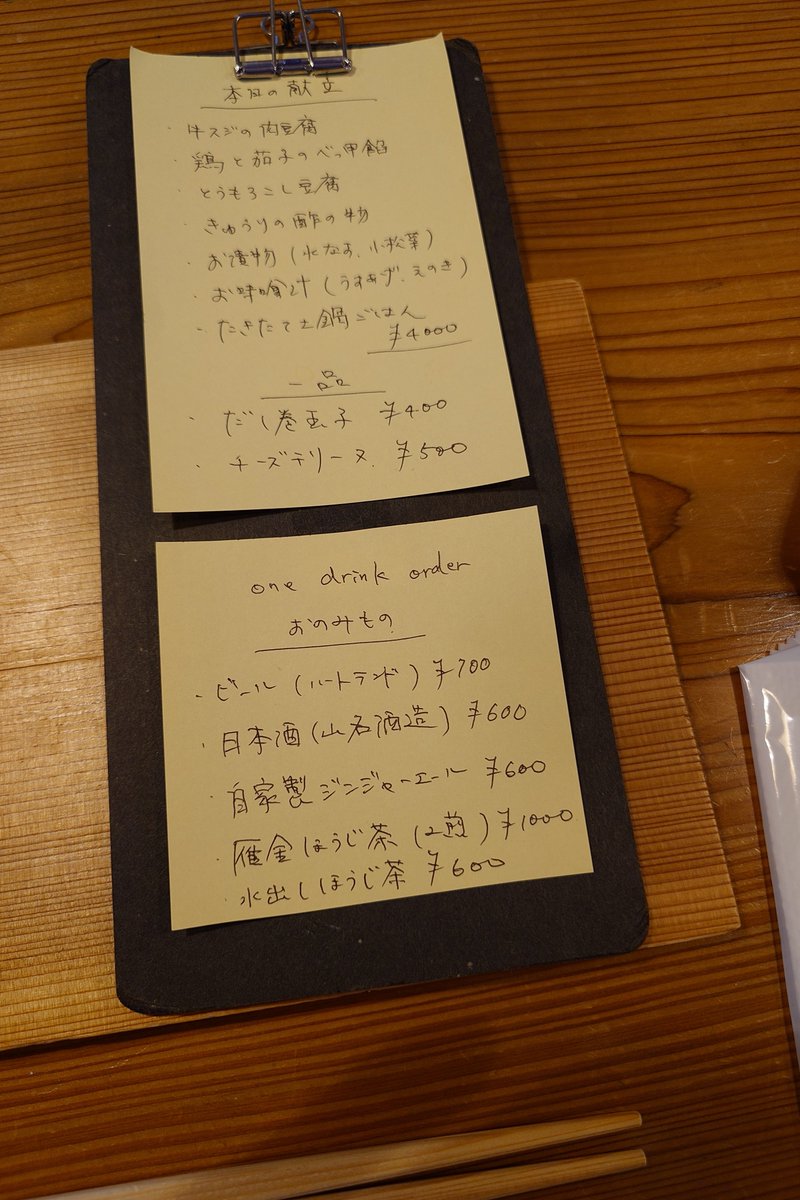 本日の献立
・牛スジの肉豆腐
・鶏と茄子のべっ甲餡
・とうもろこし豆腐
・きゅうりの酢の物
・お漬物(水なす、小松菜)
・お味噌汁(うすあげ、えのき)
・たきたて土鍋ごはん
¥4000
一品
・だし巻玉子 ¥400
・チーズテリーヌ ¥500
one drink order
おのみもの
・ビール(ハートランド)¥700
・日本酒(山名酒造)¥600
・自家製ジンジャーエール ¥600
・雁金ほうじ茶(2煎)¥1000
・水出しほうじ茶 ¥600